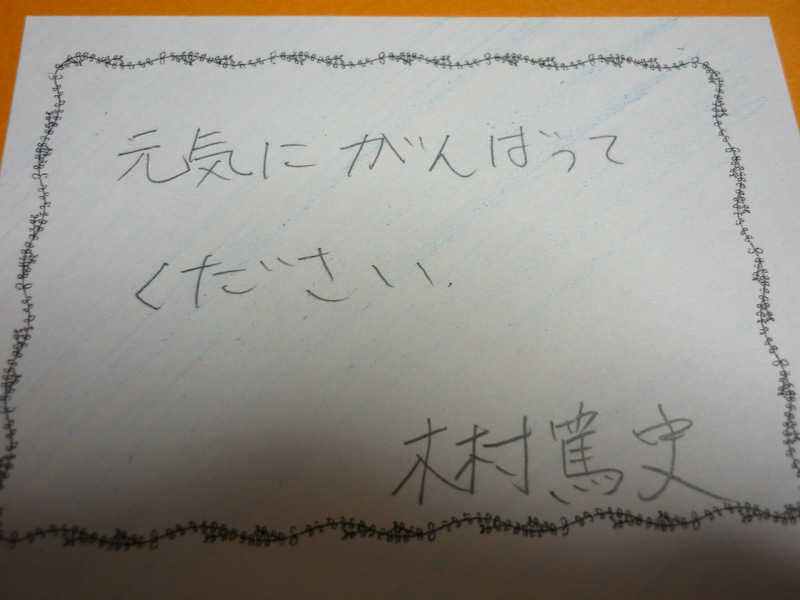 元気にがんばって
ください.
木村篤史